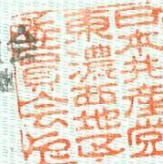 日本共産党
東濃西地区
委員会之印